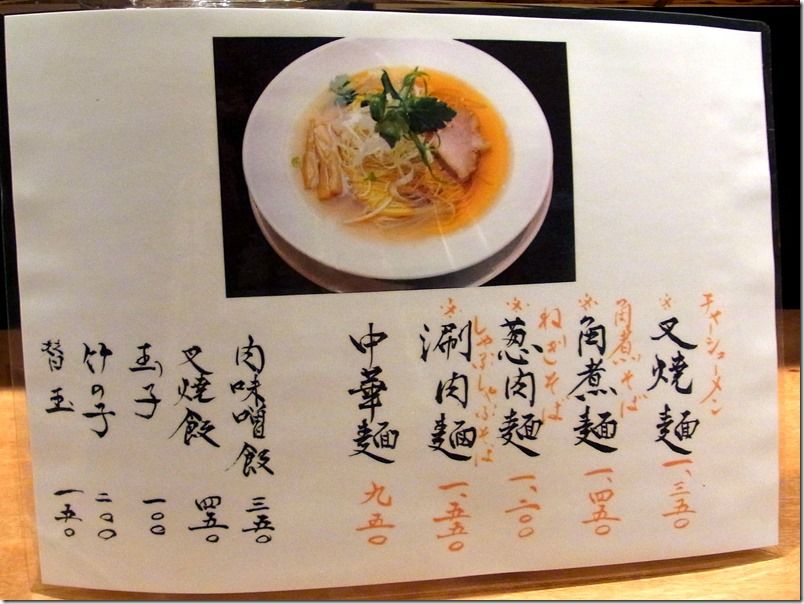 チャーシューメン
※叉焼麺 一、三五〇
角煮そば
※角煮麺 一、四五〇
ねぎそば
※葱肉麺 一、二〇〇
しゃぶしゃぶそば
※涮肉麺 一、五五〇
中華麺 九五〇
肉味噌飯 三五〇
叉焼飯 四五〇
玉子 一〇〇
竹の子 二〇〇
替玉 一五〇